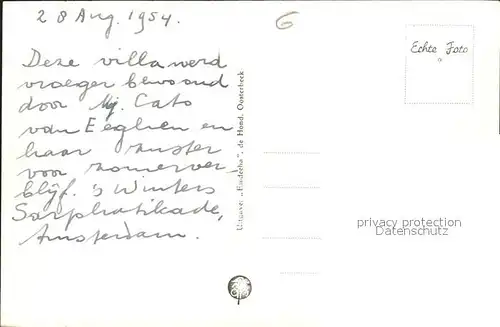 28 Aug. 1954.
6
Deze villa werd
vroeger bewoond
door Mej. Cato
van Eeghen en
haar zuster
voor zomerver-
blijf. 's Winters
Sarphatikade,
Amsterdam.
de Hond, Oosterbeek
Echte Foto
privacy protection
Datenschutz